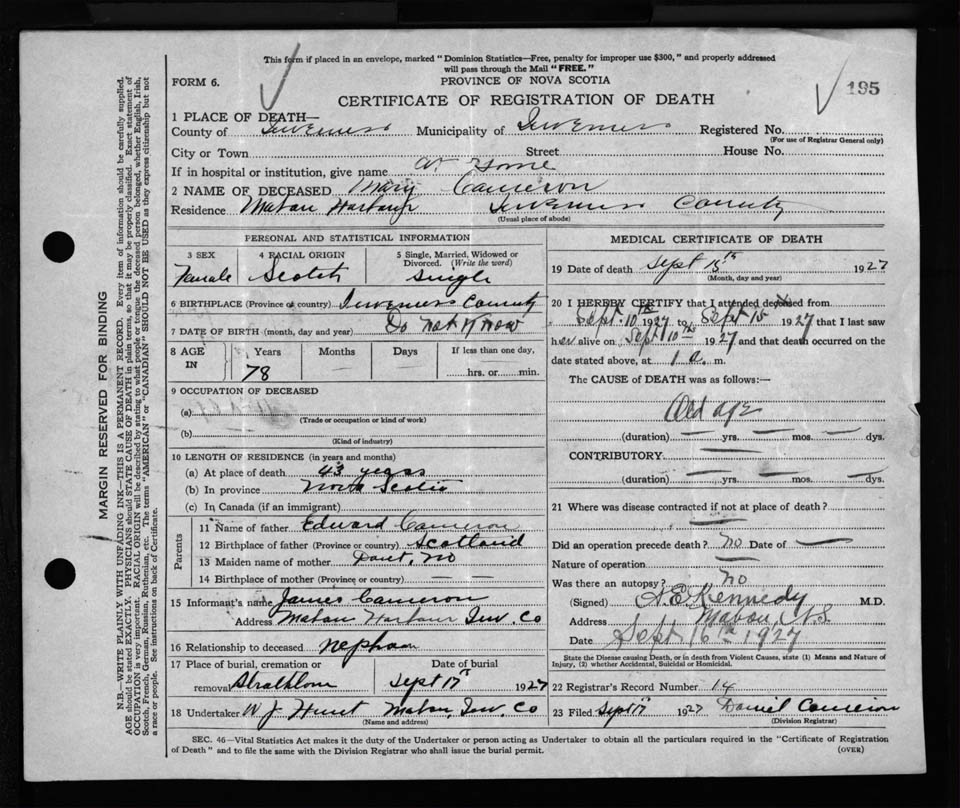 This form if placed in an envelope, marked "Dominion Statistics—Free, penalty for improper use $300," and properly addressed
will pass through the Mail "FREE."
FORM 6.
PROVINCE OF NOVA SCOTIA
195
CERTIFICATE OF REGISTRATION OF DEATH
1 PLACE OF DEATH—
County of Inverness Municipality of Inverness Registered No.
(For use of Registrar General only)
City or Town Street House No.
If in hospital or institution, give name At Home
2 NAME OF DECEASED Mary Cameron
Residence Mabou Harbour Inverness County
(Usual place of abode)
PERSONAL AND STATISTICAL INFORMATION
3 SEX 4 RACIAL ORIGIN 5 Single, Married, Widowed or Divorced. (Write the word)
Female Scotch Single
6 BIRTHPLACE (Province or country) Inverness County
7 DATE OF BIRTH (month, day and year) Do Not Know
8 AGE IN Years Months Days If less than one day,
78 — — hrs. or min.
9 OCCUPATION OF DECEASED
(a)
(Trade or occupation or kind of work)
(b)
(Kind of industry)
10 LENGTH OF RESIDENCE (in years and months)
(a) At place of death 43 years
(b) In province Nova Scotia
(c) In Canada (if an immigrant)
Parents
11 Name of father Edward Cameron
12 Birthplace of father (Province or country) Scotland
13 Maiden name of mother Dont, No
14 Birthplace of mother (Province or country) — —
15 Informant's name James Cameron
Address Mabou Harbour Inv. Co
16 Relationship to deceased nephew
17 Place of burial, cremation or removal Date of burial
Strathlorne Sept 17th 1927
18 Undertaker W J Hunt Mabou, Inv. Co
(Name and address)
MEDICAL CERTIFICATE OF DEATH
19 Date of death Sept 15th 1927
(Month, day and year)
20 I HEREBY CERTIFY that I attended deceased from
Sept. 10th 1927 to Sept 15 1927 that I last saw
her alive on Sept 10th 1927 and that death occurred on the
date stated above, at 1 a. m.
The CAUSE OF DEATH was as follows:—
Old age
(duration) — yrs. — mos. — dys.
CONTRIBUTORY — —
(duration) — yrs. — mos. — dys.
21 Where was disease contracted if not at place of death?
—
Did an operation precede death? No Date of —
Nature of operation —
Was there an autopsy? No
(Signed) A.E. Kennedy M.D.
Address Mabou, N.S
Date Sept 16th 1927
State the Disease causing Death, or in death from Violent Causes, state (1) Means and Nature of
Injury, (2) whether Accidental, Suicidal or Homicidal.
22 Registrar's Record Number 14
23 Filed Sept 17 1927 Daniel Cameron
(Division Registrar)
SEC. 46—Vital Statistics Act makes it the duty of the Undertaker or person acting as Undertaker to obtain all the particulars required in the "Certificate of Registration
of Death" and to file the same with the Division Registrar who shall issue the burial permit.
(OVER)
MARGIN RESERVED FOR BINDING
N.B.—WRITE PLAINLY WITH UNFADING INK—THIS IS A PERMANENT RECORD. Every item of information should be carefully supplied.
AGE should be stated EXACTLY. PHYSICIANS should STATE CAUSE OF DEATH in plain terms, so that it may be properly classified. Exact statement of
OCCUPATION is very important. RACIAL ORIGIN will be described by stating to what people or tongue the deceased person belonged, whether English, Irish,
Scotch, French, German, Russian, Ruthenian, etc. The terms "AMERICAN" or "CANADIAN" SHOULD NOT BE USED as they express citizenship but not
a race or people. See instructions on back of Certificate.